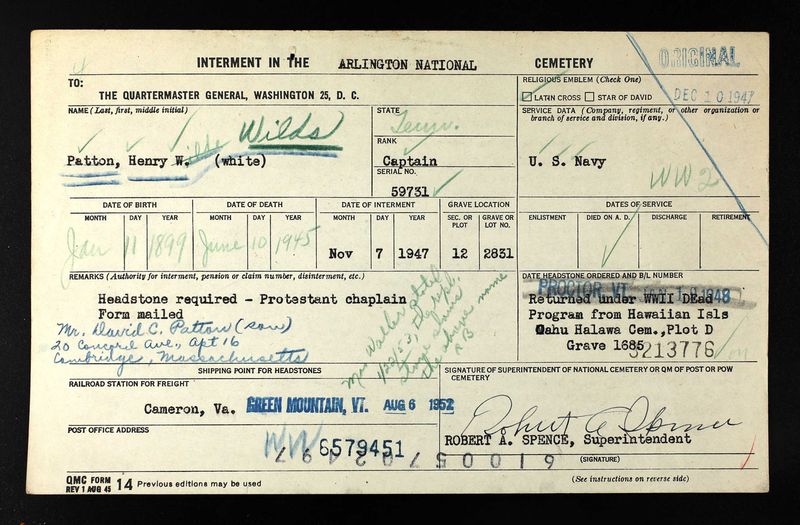 INTERMENT IN THE ARLINGTON NATIONAL CEMETERY
ORIGINAL
TO:
THE QUARTERMASTER GENERAL, WASHINGTON 25, D. C.
RELIGIOUS EMBLEM (Check One)
LATIN CROSS STAR OF DAVID
DEC 10 1947
NAME (Last, first, middle initial)
Wilds
Patton, Henry W. (white)
STATE
Tenn.
RANK
Captain
SERIAL NO.
59731
SERVICE DATA (Company, regiment, or other organization or
branch of service and division, if any.)
U. S. Navy
WW2
DATE OF BIRTH
MONTH DAY YEAR
Jan 11 1899
DATE OF DEATH
MONTH DAY YEAR
June 10 1945
DATE OF INTERMENT
MONTH DAY YEAR
Nov 7 1947
GRAVE LOCATION
SEC. OR PLOT
GRAVE OR LOT NO.
12 2831
DATES OF SERVICE
ENLISTMENT DIED ON A. D. DISCHARGE RETIREMENT
REMARKS (Authority for interment, pension or claim number, disinterment, etc.)
Headstone required - Protestant chaplain
Form mailed
Mr. David C. Patton (son)
20 Concord Ave., Apt 16
Cambridge, Massachusetts
the above name
RB
DATE HEADSTONE ORDERED AND B/L NUMBER
PROCTOR VT. JAN 1948
Returned under WWII DEad
Program from Hawaiian Isls
Oahu Halawa Cem., Plot D
Grave 1685
3213776
SHIPPING POINT FOR HEADSTONES
RAILROAD STATION FOR FREIGHT
Cameron, Va. GREEN MOUNTAIN, VT. AUG 6 1952
POST OFFICE ADDRESS
WW 6579451
SIGNATURE OF SUPERINTENDENT OF NATIONAL CEMETERY OR QM OF POST OR POW
CEMETERY
Robert A Spence
ROBERT A. SPENCE, Superintendent
(SIGNATURE)
QMC FORM
REV 1 AUG 45 14 Previous editions may be used
(See instructions on reverse side)